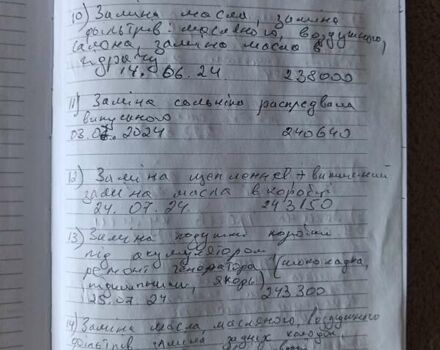 10) Заміна масла, заміна
фільтрів: масляного, воздушного,
салона, заміна масла в
14. 06. 24. 238000
11) Заміна сальніка распредвала
випускного
03. 07. 2024 240640
12) Заміна щеплення + вижимний
заміна масла в коробці
24. 07. 24. 243150
13) Заміна подушки коробки
під акумулятором
ремонт генератора (шоколадка,
підшипники, якорь)
25.07. 24. 243300
14) Заміна масла, масляного, воздушного
фільтрів, заміна задніх колодок,